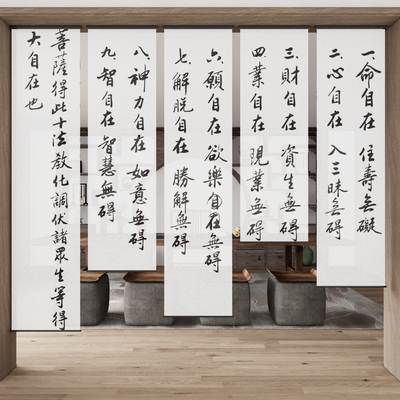 一命自在 住壽無礙
二心自在 入三昧無碍
三財自在 資生無碍
四業自在 現業無碍
六願自在 欲樂自在無碍
七解脫自在 勝解無碍
八神力自在 如意無碍
九智自在 智慧無碍
菩薩得此十法教化調伏諸眾生等得
大自在也